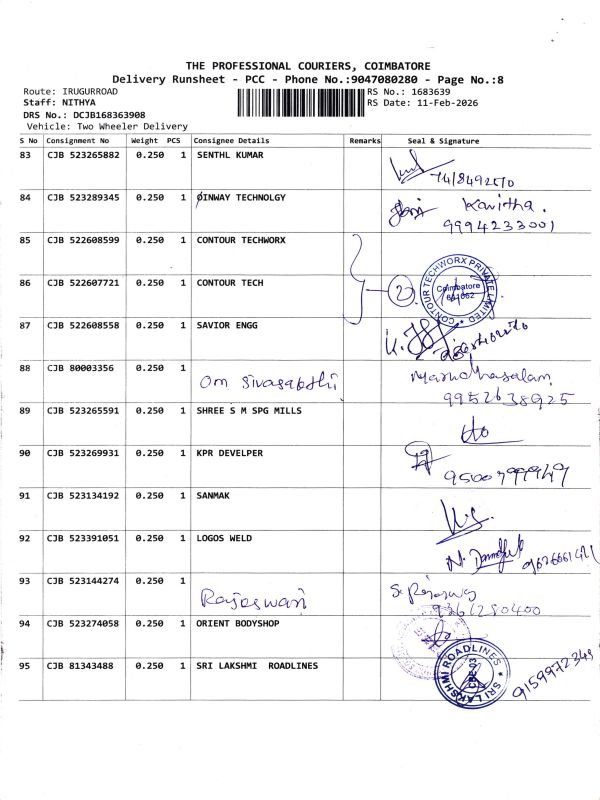 THE PROFESSIONAL COURIERS, COIMBATORE
Delivery Runsheet - PCC - Phone No.:9047080280 - Page No.:8
Route: IRUGURROAD RS No.: 1683639
Staff: NITHYA RS Date: 11-Feb-2026
DRS No.: DCJB168363908
Vehicle: Two Wheeler Delivery
S No Consignment No Weight PCS Consignee Details Remarks Seal & Signature
83 CJB 523265882 0.250 1 SENTHL KUMAR
84 CJB 523289345 0.250 1 OINWAY TECHNOLGY Kavitha.
9994233001
85 CJB 522608599 0.250 1 CONTOUR TECHWORX
86 CJB 522607721 0.250 1 CONTOUR TECH 2
CONTOUR TECHWORX PRIVATE LIMITED
Coimbatore
641062
87 CJB 522608558 0.250 1 SAVIOR ENGG
88 CJB 80003356 0.250 1
Om Sivasakthi
9952638925
89 CJB 523265591 0.250 1 SHREE S M SPG MILLS
90 CJB 523269931 0.250 1 KPR DEVELPER
91 CJB 523134192 0.250 1 SANMAK
92 CJB 523391051 0.250 1 LOGOS WELD
93 CJB 523144274 0.250 1
Rajeswari
9361280400
94 CJB 523274058 0.250 1 ORIENT BODYSHOP
95 CJB 81343488 0.250 1 SRI LAKSHMI ROADLINES
SRI LAKSHMI ROADLINES
CBE-03
9159972349